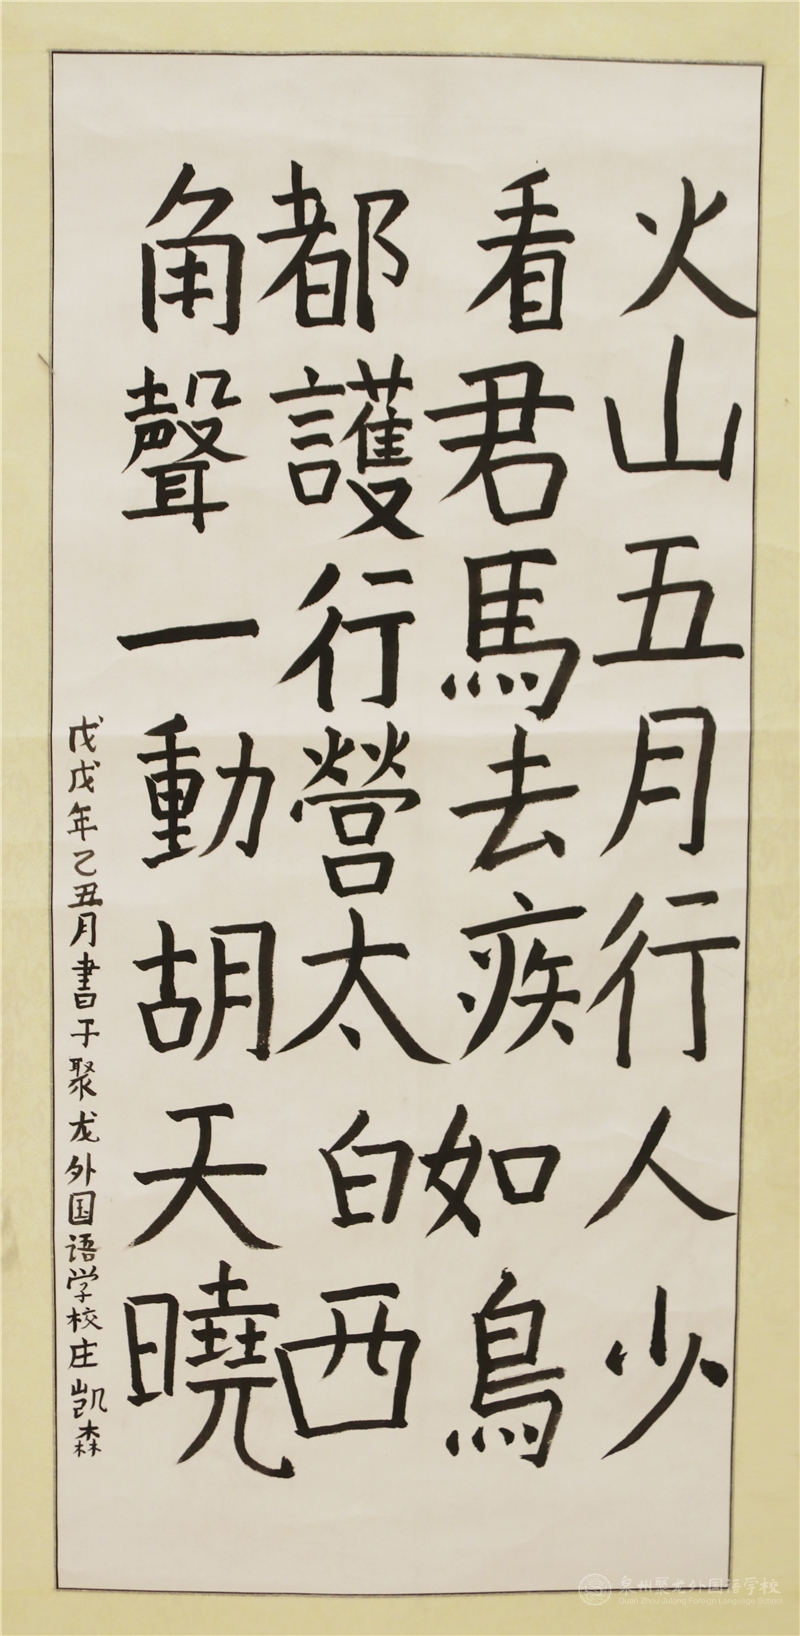 火山五月行人少
看君馬去疾如鳥
都護行營太白西
角聲一動胡天曉
戊戌年乙丑月書于聚龙外国语学校庄凯森
泉州聚龙外国语学校
Quan Zhou Julong Foreign Language School